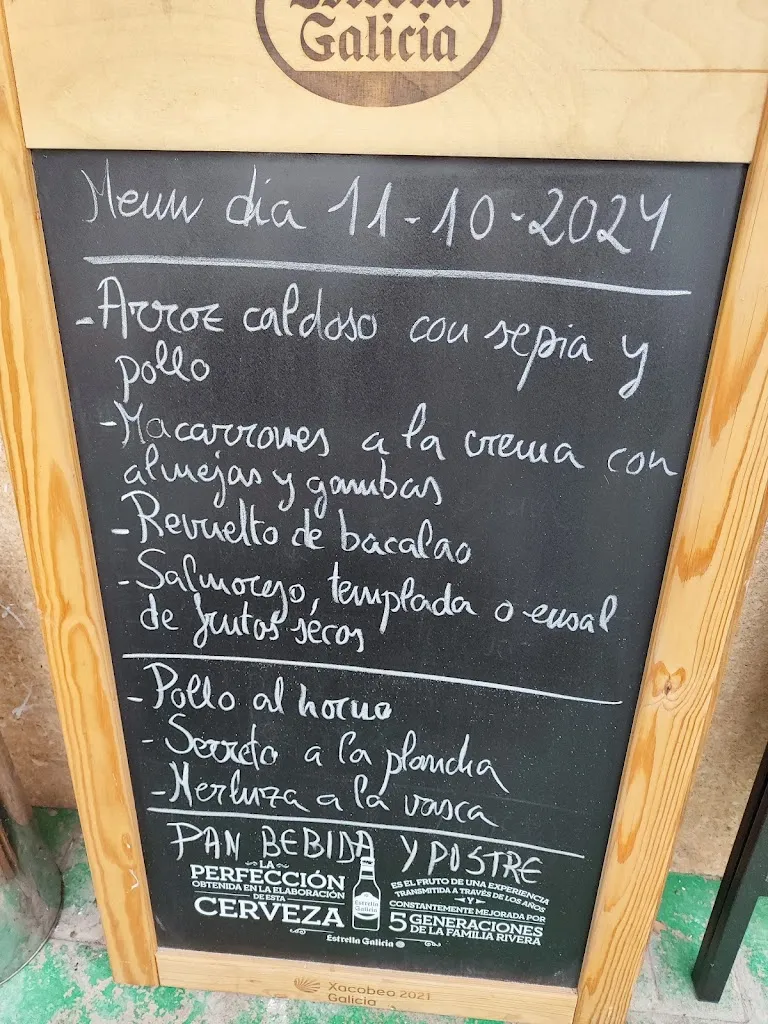 Galicia
Menu dia 11-10-2024
-Arroz caldoso con sepia y
pollo
-Macarrones a la crema con
almejas y gambas
-Revuelto de bacalao
-Salmorejo, templada o ensal
de frutos secos
-Pollo al horno
-Secreto a la plancha
-Merluza a la vasca
PAN BEBIDA Y POSTRE
LA
PERFECCIÓN
OBTENIDA EN LA ELABORACIÓN
DE ESTA
CERVEZA
Estrella
Galicia
ES EL FRUTO DE UNA EXPERIENCIA
TRANSMITIDA A TRAVÉS DE LOS AÑOS
Y
CONSTANTEMENTE MEJORADA POR
5 GENERACIONES
DE LA FAMILIA RIVERA
Estrella Galicia
Xacobeo 2021
Galicia